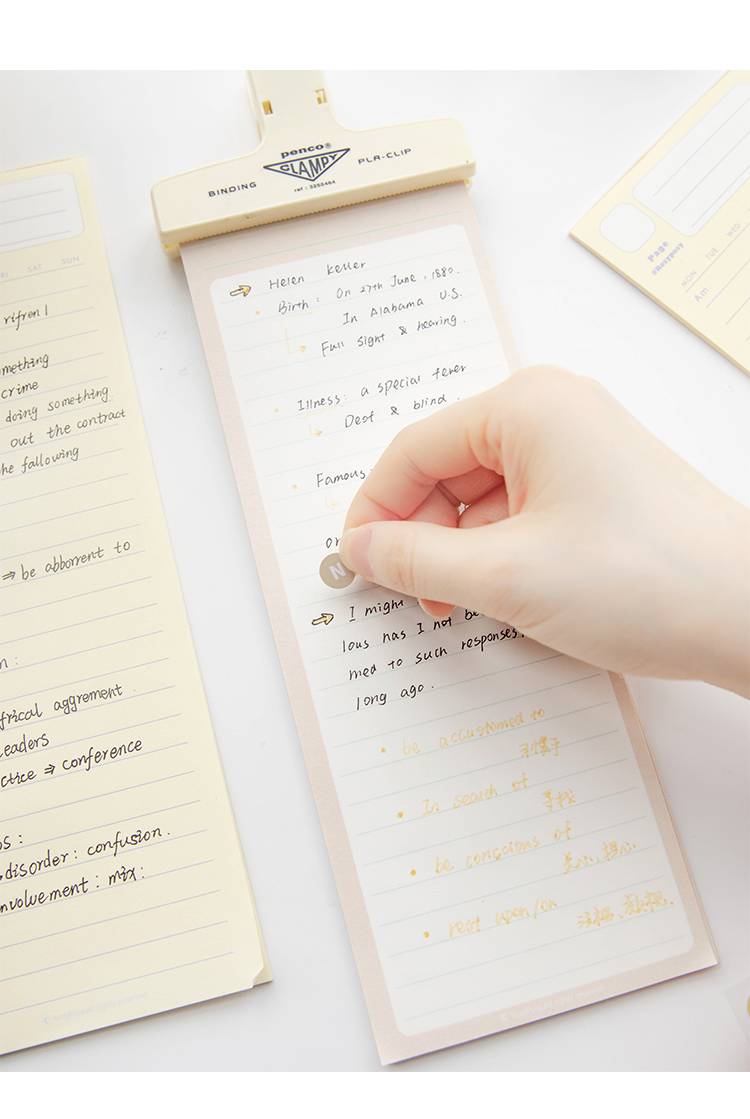 penco®
CLAMPY
BINDING
PLA-CLIP
ref : 3252464
FRI SAT SUN
rifrenl
mething
crime
doing something
out the contract
he fallowing
⇒ be abborrent to
n :
frical aggrement
eaders
ctice ⇒ conference
os :
disorder : confusion.
nvoluement : mix :
Helen Keller
Birth : On 27th June, 1880.
In Alabama U.S.
Full sight & hearing.
Illness : a special fever
Deaf & blind.
Famous :
or
N
I might
lous has I not be
med to such responses.
long ago.
be accustomed to
习惯于
In search of
寻找
be conscious of
rest upon/on
Page
MON TUE WED
Am